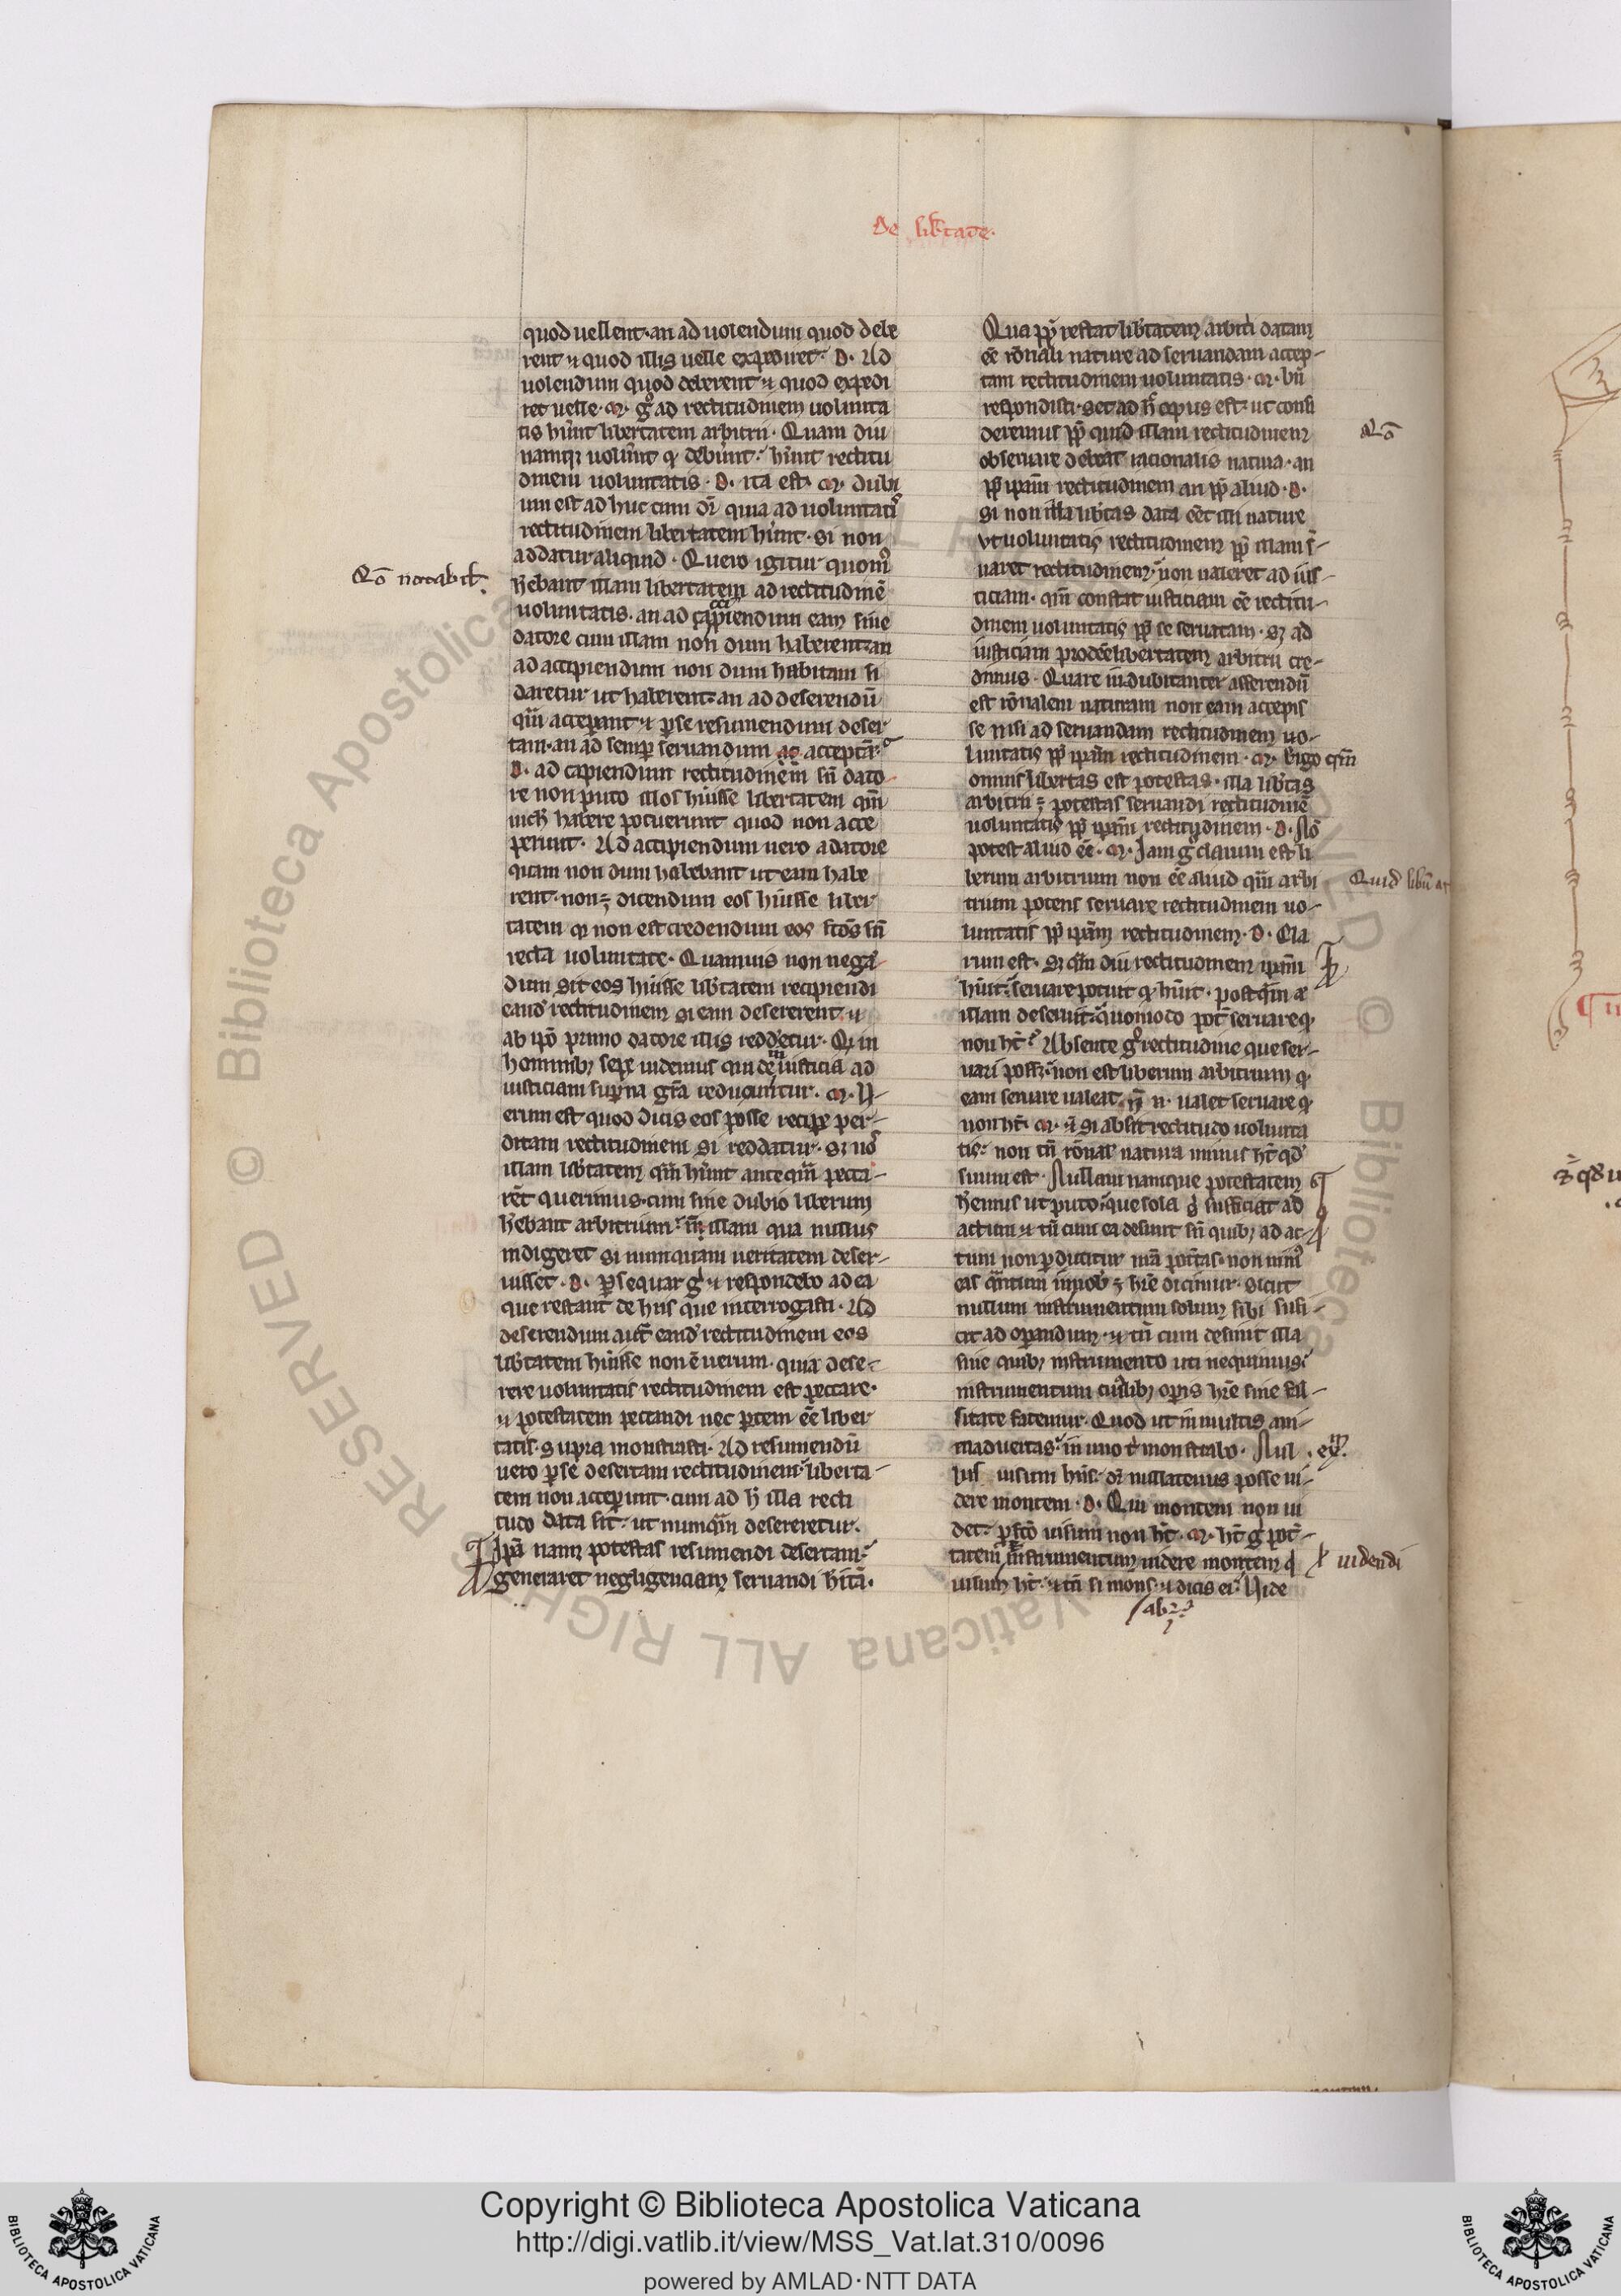 De lib̄tate.
quod uellent. an ad uolendum quod debe
rent ⁊ quod illis uelle expediret. D. Ad
uolendum quod deberent ⁊ quod expedi
ret uelle. M. gͦ ad rectitudinem uolunta
tis hr̄unt libertatem arbitrii. Quam diu
namqꝫ uolūnt qͥ debūnt. hr̄unt rectitu
dinem uoluntatis. D. ita est. M. Dubi
um est ad huc cum dr̄ quia ad uoluntatis
rectitudinem libertatem hr̄unt. si non
addatur aliquid. Quero igitur quomͦ
Qō notabil̄.
hebant illam libertatem ad rectitudinē
uoluntatis. an ad capiendum eam sine
datore cum illam non dum haberent. an
ad accipiendum non dum habitam si
daretur ut haberent. an ad deserendū
qm̄ acceperant ⁊ ꝑ se resumendum deser
tam. an ad semꝑ seruandum acceptā.
D. ad capiendum rectitudinem sn̄ dato
re non puto illos hūisse libertatem qm̄
nich̄ habere potuerunt quod non acce
perunt. Ad accipiendum uero a datore
quam non dum habebant ut eam habe
rent. non ē dicendum eos hūisse liber
tatem qͥ non est credendum eos fc̄os sn̄
recta uoluntate. Quamuis non negā
dum sit eos hūisse lib̄tatem recipiendi
eand̄ rectitudinem si eam desererent. ⁊
ab ip̄o primo datore illis redd̄etur. Qͥ in
hominibꝫ sepe uidemus qui de iniusticia ad
iusticiam sup̄na gr̄a reducuntur. M. U-
erum est quod dicis eos posse reciꝑe per-
ditam rectitudinem si reddatur. sꝫ nͦ
illam lib̄tatem qm̄ hr̄unt anteqm̄ pecca-
rēt querimus. cum sine dubio liberum
hebant arbitrium. illam qua nullus
indigeret si numquam ueritatem deser-
uisset. D. ꝑsequar gͦ ⁊ respondebo ad ea
que restant de hiis que interrogasti. Ad
deserendum aut̄ eand̄ rectitudinem eos
lib̄tatem hūisse non ē uerum. quia dese-
rere uoluntatis rectitudinem est peccare.
⁊ potestatem peccandi nec ꝑtem eē liber
tatis. supra monstrasti. Ad resumendū
uero ꝑ se desertam rectitudinem. liberta-
tem non acceꝑunt. cum ad h̄ illa recti
tudo data sit. ut numqm̄ desereretur.
Ip̄a namꝫ potestas resumendi desertam.
generaret negligenciam seruandi hitā.
Qua ꝓpt̄ restat lib̄tatem arbit̄i datam
eē rōnali nature ad seruandam accep-
tam rectitudinem uoluntatis. M. bn̄
respondisti. set ad h̄ opus est. ut consi
deremus ꝓpt̄ quid illam rectitudinem
Qō
obseruare debeat racionalis natura. an
ꝓpt̄ ipam̄ rectitudinem an ꝓpt̄ aliud. D.
Si non illa lib̄tas data eēt illi nature
vt uoluntatis rectitudinem ꝓpt̄ illam s̄-
uaret rectitudinem. non ualeret ad ius-
ticiam. qm̄ constat iusticiam eē rectitu-
dinem uoluntatis ꝓpt̄ se seruatam. sꝫ ad
iusticiam prodeē libertatem arbitrii cre-
dimus. Quare indubitanter asserendū
est rōnalem naturam non eam accepis
se nisi ad seruandam rectitudinem uo-
luntatis ꝓpt̄ ipam̄ rectitudinem. M. Ergo qm̄
omnis libertas est potestas. illa lib̄tas
arbitrii ē potestas seruandi rectitudinē
uoluntatis ꝓpt̄ ipam̄ rectitudinem. D. Nō
potest aliud eē. M. Jam gͦ clarum est li
berum arbitrium non eē aliud qm̄ arbi
Quid lib̄ū ar
trium potens seruare rectitudinem uo-
luntatis ꝓpt̄ ipam̄ rectitudinem. D. Cla
rum est. sꝫ qm̄ diu rectitudinem ipam̄
hūit. seruare potuit qͥ hūit. postqm̄ ā
illam deseruit. quomodo pot̄ seruare qͥ
non ht̄. Absente gͦ rectitudine que ser-
uari poss̄. non est liberum arbitrium qͥ
eam seruare ualeat. n̄ n. ualet seruare qͥ
non ht̄. M. si absit rectitudo uolunta
tis. non tn̄ rōnal̄ natura minus ht̄ qd̄
suum est. Nullam namque potestatem
hemus ut puto. que sola sufficiat ad
actum. ⁊ tn̄ cum ea desunt sn̄ quibꝫ ad ac-
tum non ꝑducitur nr̄ā potestas. non minͥ
eas qm̄tum in nob̄ ē hr̄e dicimur. Sicut
nullum instrumentum solum sibi sufi-
cit ad oꝑandum. ⁊ tn̄ cum desunt illa
sine quibꝫ instrumento uti nequimus.
instrumentum cuiͥlibꝫ oꝑis hr̄e sine fal-
sitate fatemur. Quod ut in multis ani-
maduertas. in uno t̄ monstrabo. Nul
exͫ.
lus uisum hn̄s dr̄ nullatenus posse ui-
dere montem. D. Qui montem non ui
det. ꝑfcō uisum non ht̄. M. ht̄ gͦ pot̄-
tatem instrumentum uidere montem qͥ
uidendi
uisum ht̄. ⁊ tn̄ si mons. ⁊ dicis ei. Uide
ab2
Copyright © Biblioteca Apostolica Vaticana
http://digi.vatlib.it/view/MSS_Vat.lat.310/0096
powered by AMLAD·NTT DATA
BIBLIOTECA APOSTOLICA VATICANA
BIBLIOTECA APOSTOLICA VATICANA